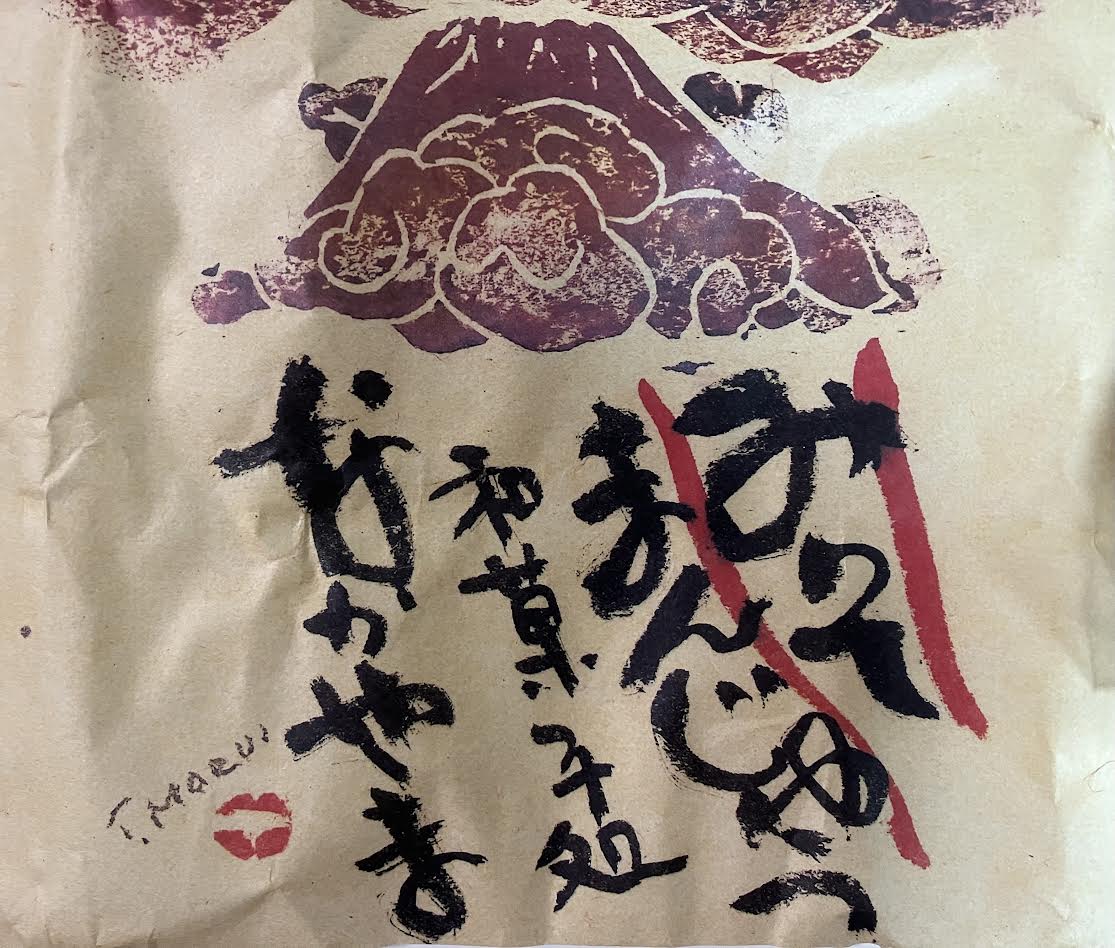 みそ
まんじゅう
和菓子処
なかやま
T.MARUI